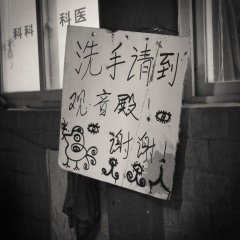 科科
科医
洗手请到
观音殿!
谢谢!